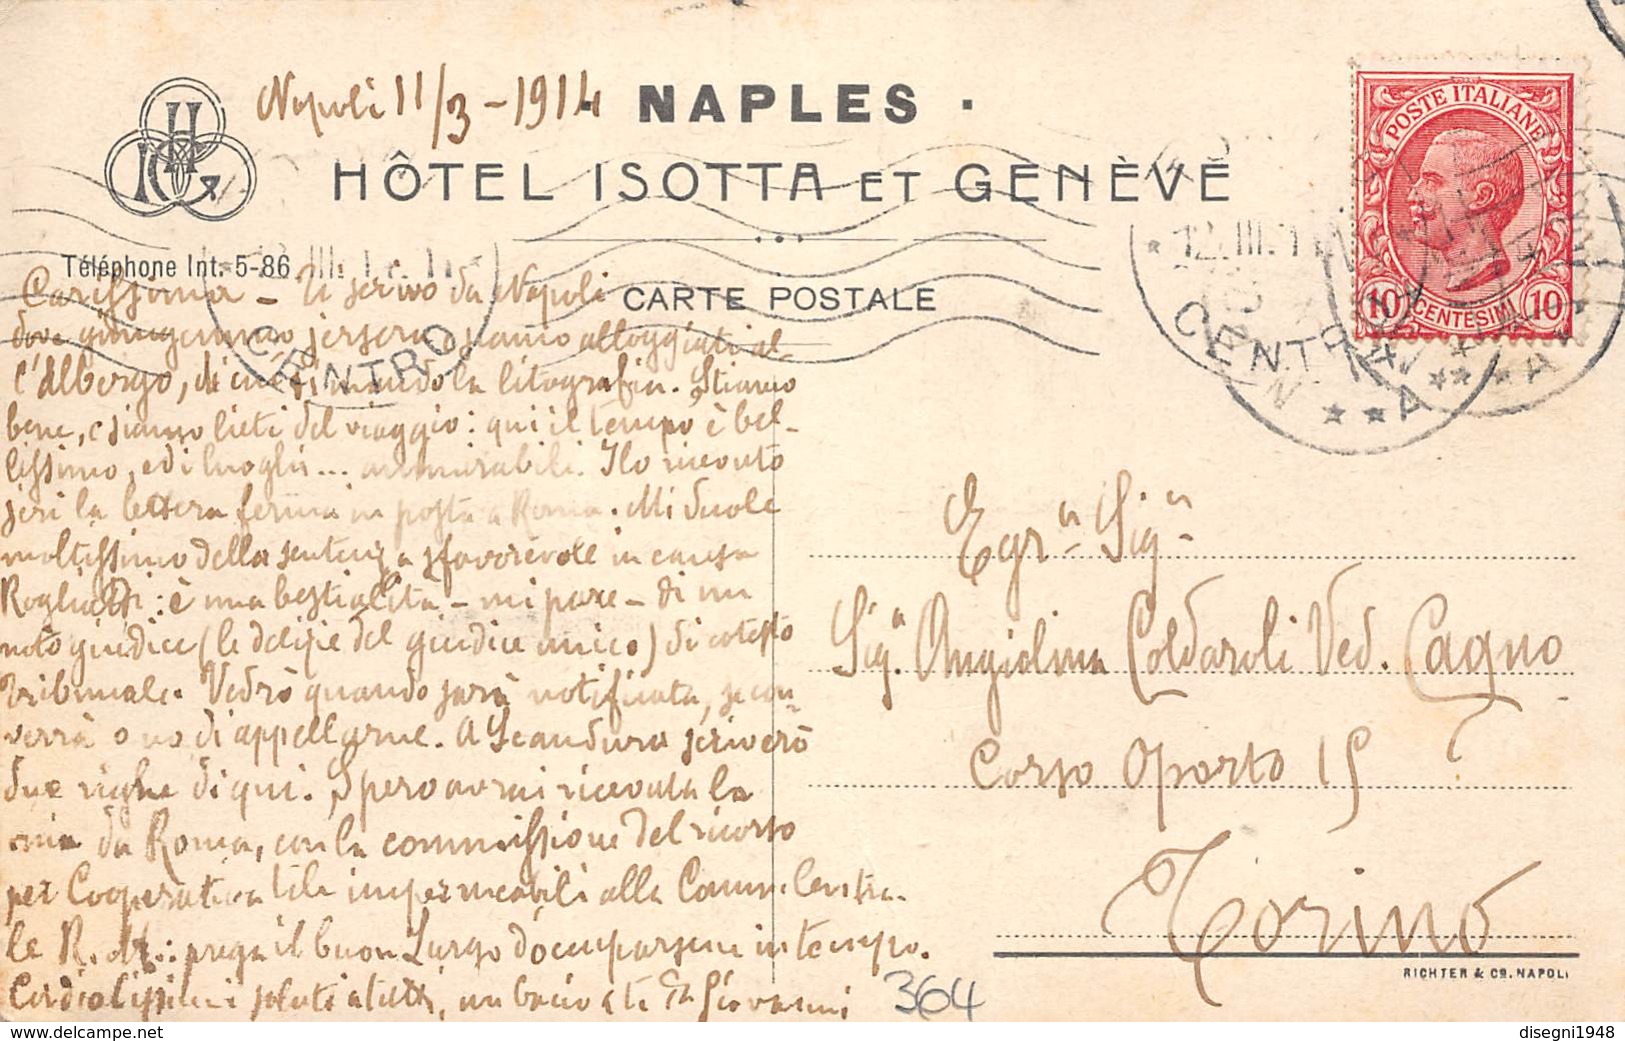 Napoli 11/3-1914
· NAPLES ·
HIG
HÔTEL ISOTTA ET GENÈVE
Téléphone Int. 5-86
CARTE POSTALE
POSTE ITALIANE
10 CENTESIMI 10
12.III.1
CENTRO
CENTRO
Carissima - Ti scrivo da Napoli
dove giungemmo jersera e siamo alloggiati al-
l'albergo, di cui ti mando la litografia. Stiamo
bene, e siamo lieti del viaggio: qui il tempo è bel-
lissimo, ed i luoghi... ammirabili. Ho ricevuto
jeri la lettera fermа in posta a Roma. Mi duole
moltissimo della sentenza sfavorevole in causa
Rogliatti: è una bestialità - mi pare - di un
noto giudice (le delizie del giudice unico) di cotesto
Tribunale. Vedrò quando sarà notificata, se con-
verrà o no di appellarne. A Scandura scriverò
due righe di qui. Spero avrai ricevuta la
mia da Roma, con la commissione del ricorso
per Cooperativa tele impermeabili alla Comm. Centra-
le R. M.: prega il buon Lurgo d'occuparsene in tempo.
Cordialissimi saluti a tutti, un bacio a te Giovanni
364
Egr.ª Sig.ª
Sig.ª Angiolina Coldaroli Ved. Cagno
Corso Oporto 15
Torino
RICHTER & Cº. NAPOLI
delcampe.net
disegni1948